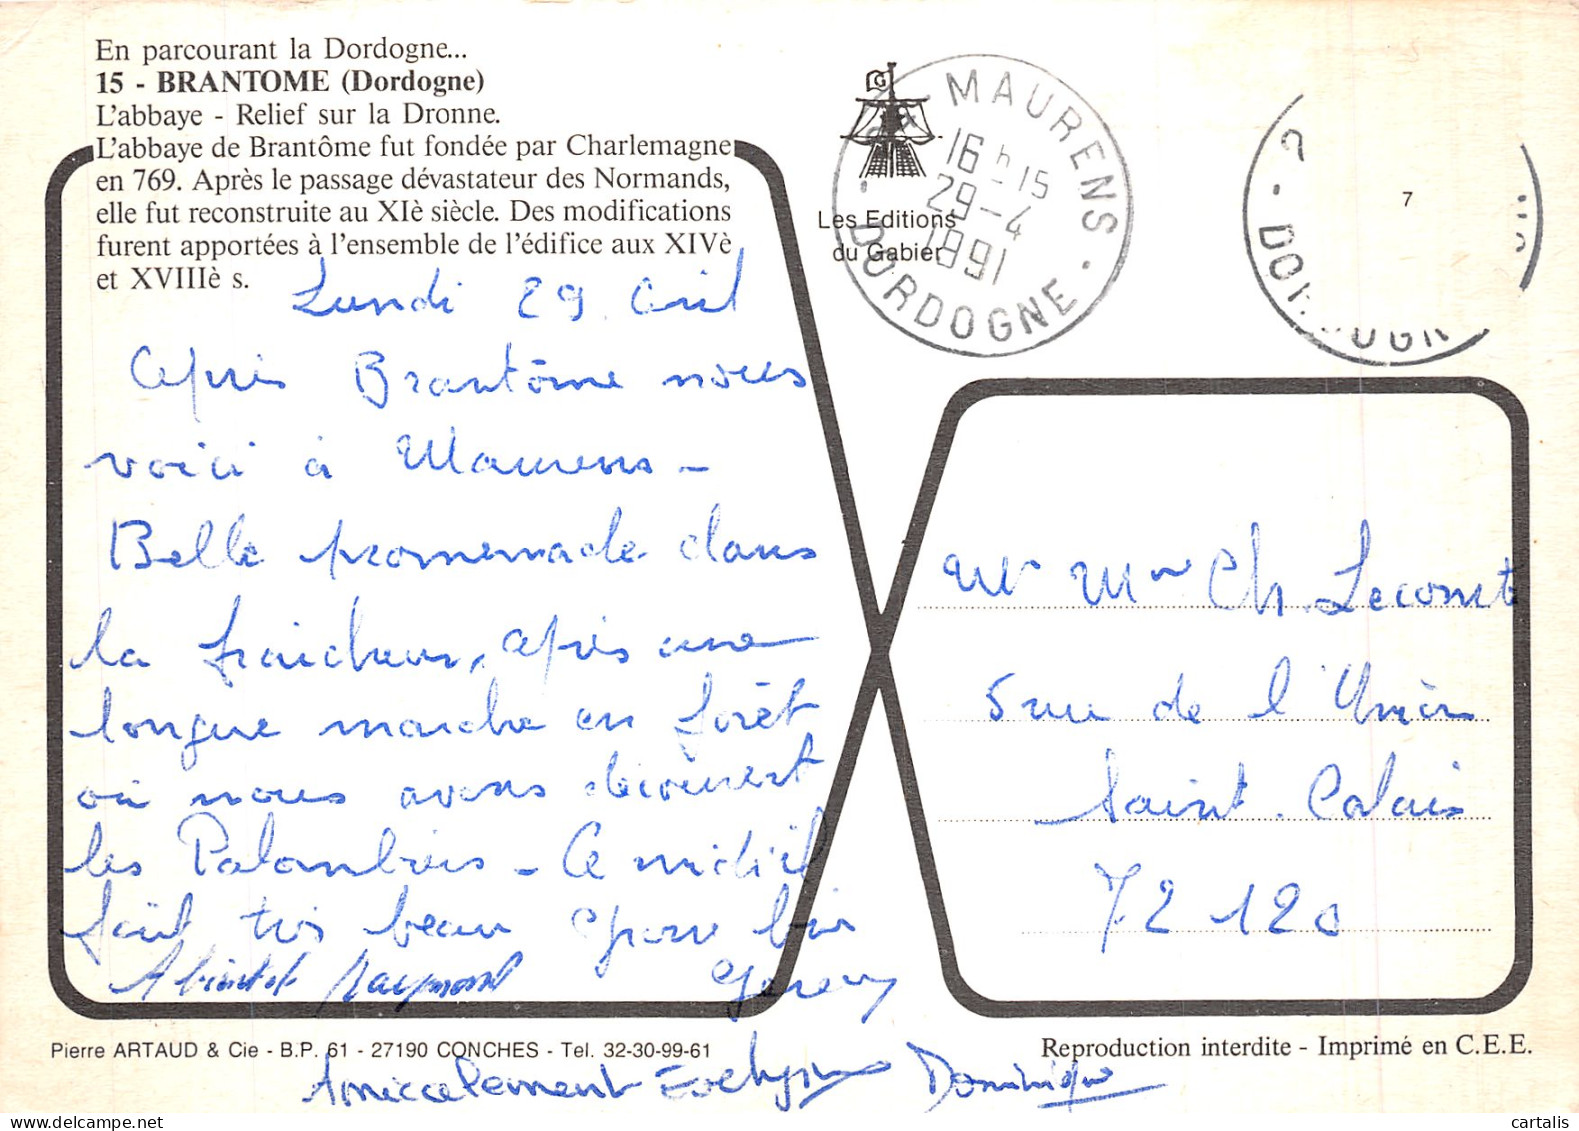 En parcourant la Dordogne...
15 - BRANTOME (Dordogne)
L'abbaye - Relief sur la Dronne.
L'abbaye de Brantôme fut fondée par Charlemagne
en 769. Après le passage dévastateur des Normands,
elle fut reconstruite au XIè siècle. Des modifications
furent apportées à l'ensemble de l'édifice aux XIVè
et XVIIIè s.
Les Editions
du Gabier
MAURENS
16 h 15
29-4
1991
DORDOGNE
7
Lundi 29 Avril
Après Brantôme nous
voici à Maurens -
Belle promenade dans
la fraicheur, après une
longue marche en forêt
où nous avons découvert
les Palombières - Ce midi il
fait très beau
A bientôt Raymond
Amicalement Evelyne Dominique
Mr Mme Ch. Lecomte
5 rue de l'Union
Saint. Calais
72120
Pierre ARTAUD & Cie - B.P. 61 - 27190 CONCHES - Tel. 32-30-99-61
Reproduction interdite - Imprimé en C.E.E.
cartalis